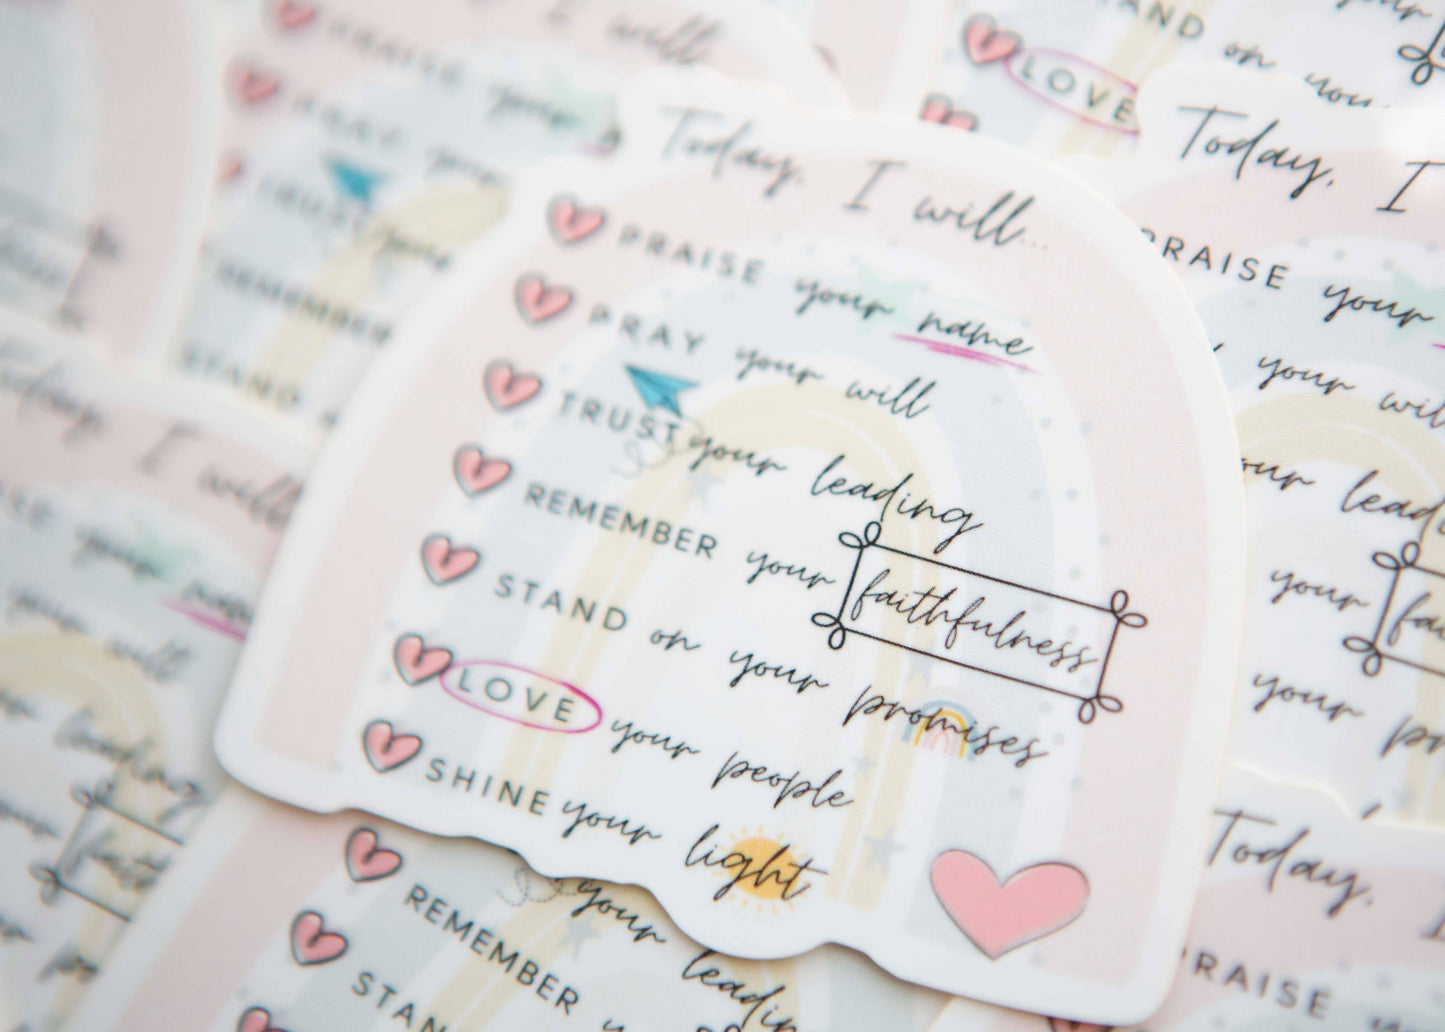 Today, I will...
PRAISE your name
PRAY your will
TRUST your leading
REMEMBER your faithfulness
STAND on your promises
LOVE your people
SHINE your light
PRAISE your
PRAY your
TRUST your
REMEMBER
STAND
I will
STAND on your
LOVE
Today, I
PRAISE your
your will
your leading
your
your
Today, I will
your name
your will
leading
REMEMBER your leading
STAND
Today,
PRAISE